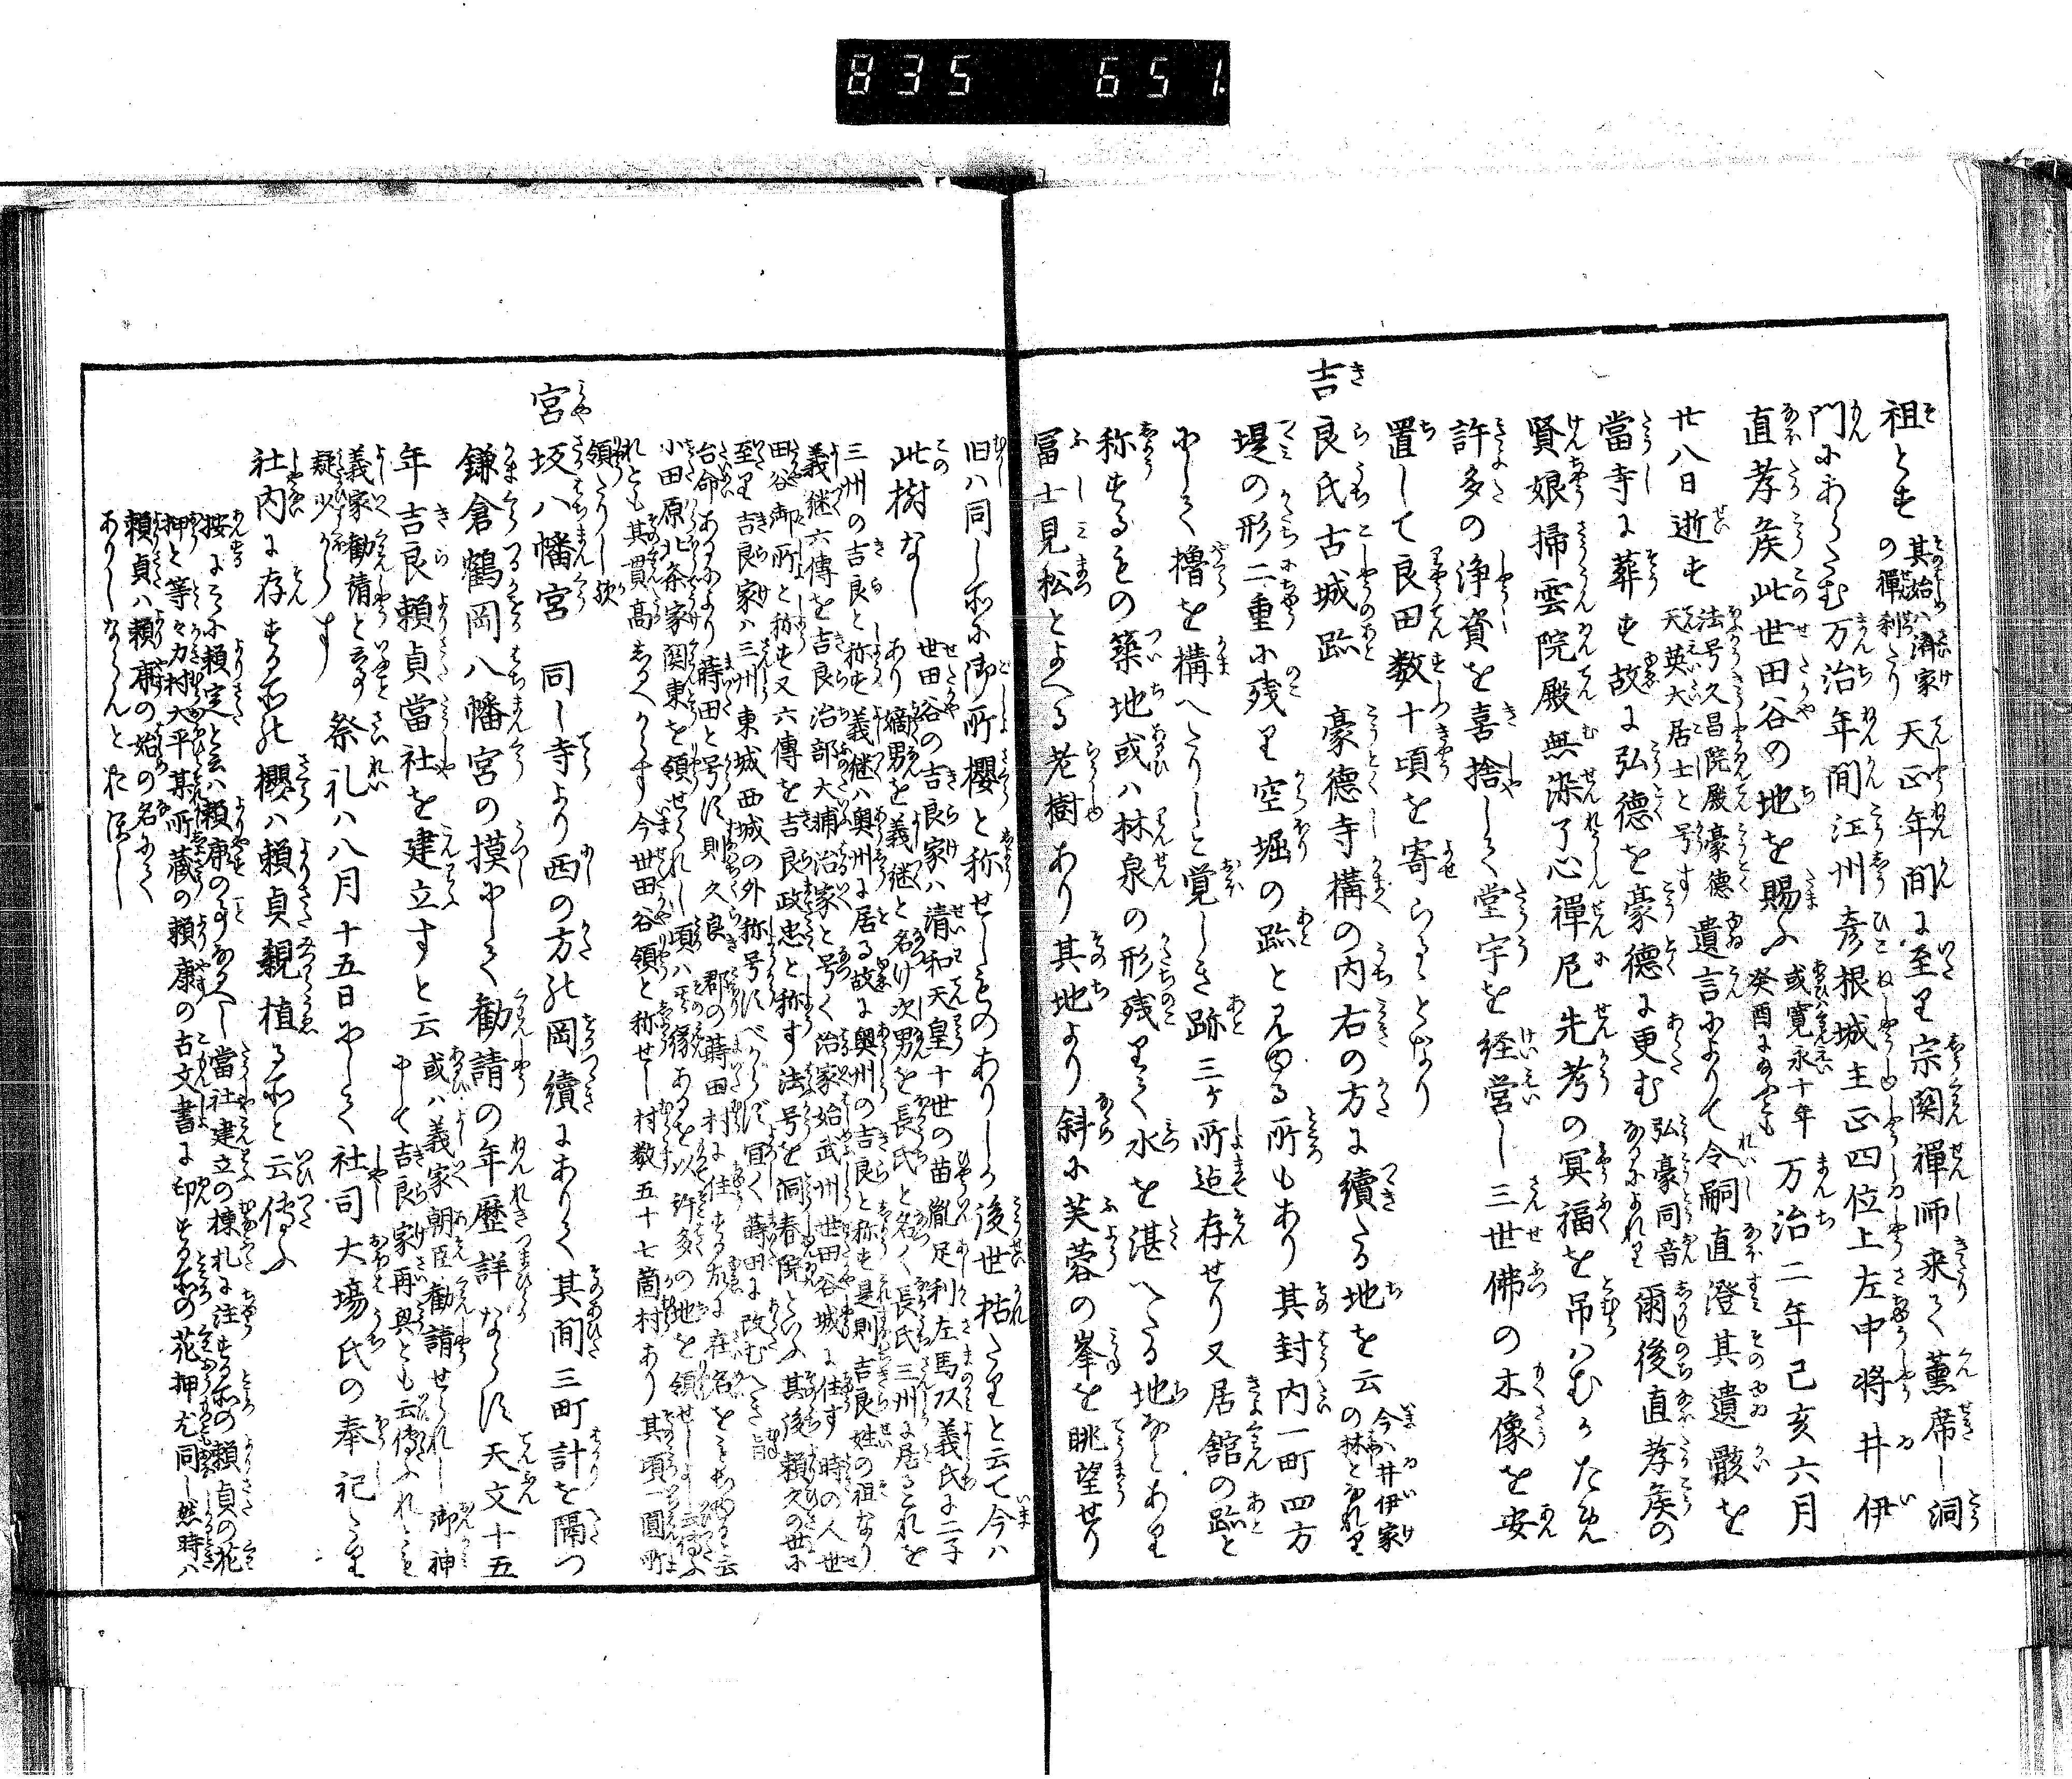 835 651.
祖とす 其始ハ濟家の禪刹たり 天正年間に至り宗関禪師来て薫席し洞
門にあらたむ万治年間江州彦根城主正四位上左中将井伊
直孝矦此世田谷の地を賜ふ 或寛永十年癸酉にあつとも 万治二年己亥六月
廿八日逝す 法号久昌院殿豪徳天英大居士と号す 遺言によりて令嗣直澄其遺骸を
當寺に葬す故に弘徳を豪徳に更む 弘豪同音なるによれり 爾後直孝矦の
賢娘掃雲院殿無染了心禪尼先考の冥福を吊ハむかため
許多の浄資を喜捨して堂宇を経営し三世佛の木像を安
置して良田数十頃を寄らるゝとなり
吉良氏古城跡 豪徳寺構の内右の方に續たる地を云 今ハ井伊家の林となれり
堤の形二重に残り空堀の跡と見ゆる所もあり其封内一町四方
にして櫓を構へたりしと覚しき跡三ヶ所迠存せり又居舘の跡と
称するもの築地或ハ林泉の形残りて水を湛へたる地なとあり
冨士見松とよへる老樹あり其地より斜に芙蓉の峯を眺望せり
旧ハ同し所に御所櫻と称せしものありしか後世枯たりと云て今ハ
此樹なし 世田谷の吉良家ハ清和天皇十世の苗胤足利左馬頭義氏に二子
あり嫡男を義継と名け次男を長氏と名く長氏三州に居るこれを
三州の吉良と称す義継ハ奥州に居る故に奥州の吉良と称す是則吉良姓の祖なり
義継六傳を吉良治部大輔治家と号く治家始武州世田谷城に住す時の人世
田谷御所と称す又六傳を吉良政忠と称す法号を洞春院といふ其後頼久の世に
至り吉良家ハ三州東城西城の外称号すべからず宜く蒔田に改むへき旨
台命あるにより蒔田と号す則久良郡の蒔田村に住する故に在名をとなへしと云
小田原北条家関東を領せられし頃ハ其縁あるを以許多の地を領せしよし云傳ふ
れとも其貫高しるへからす今世田谷領と称せし村数五十七箇村あり其頃一圓所
領たりし歟
宮坂八幡宮 同し寺より西の方の岡續にありて其間三町計を隔つ
鎌倉鶴岡八幡宮の摸にして勧請の年歴詳ならす天文十五
年吉良頼貞當社を建立すと云 或ハ義家朝臣勧請せられし御神にして吉良家再興とも云傳ふれとも
義家勧請と云事疑少からす 祭礼ハ八月十五日にして社司大場氏の奉祀たり
社内に存する所の櫻ハ頼貞親植る所と云傳ふ
按するに頼定と云ハ頼康の事なるへし當社建立の棟札に注する所の頼貞の花
押と等々力村大平某所蔵の頼康の古文書に印する所の花押尤同し然時ハ
頼貞ハ頼康の始の名にて
ありしならんと